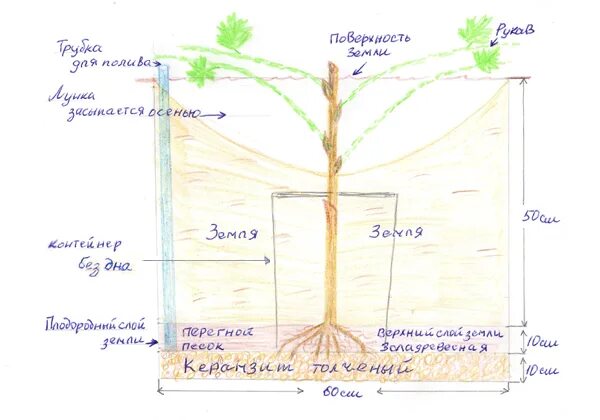 Трубка
для полива
Поверхность
Земли
Рукав
Лунка
засыпается осенью
Земля
Земля
50см
контейнер
без дна
Плодородный слой
земли
перегной
песок
Верхний слой земли
Золадревесная
10см
Керанзит толченый
10см
60см